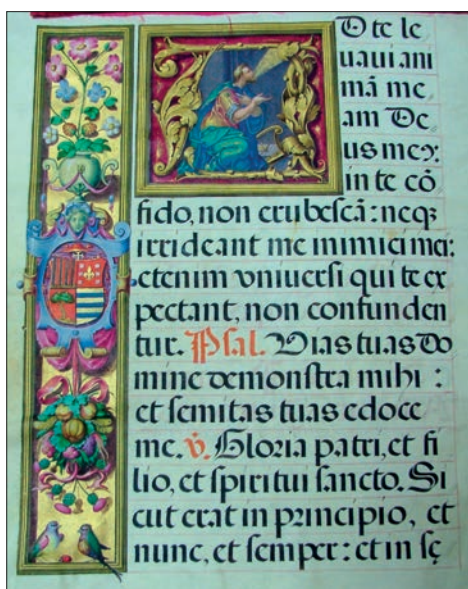 AD te le
uaui ani
mā me
am De
us meꝰ:
in te cō
fido, non erubescā: neqꝫ
irrideant me inimici mei:
etenim vniuersi qui te ex
pectant, non confunden
tur. Psal. Vias tuas do
mine demonstra mihi :
et semitas tuas edoce
me. v̇. Gloria patri, et fi
lio, et spiritui sancto. Si
cut erat in principio, et
nunc, et semper : et in sę